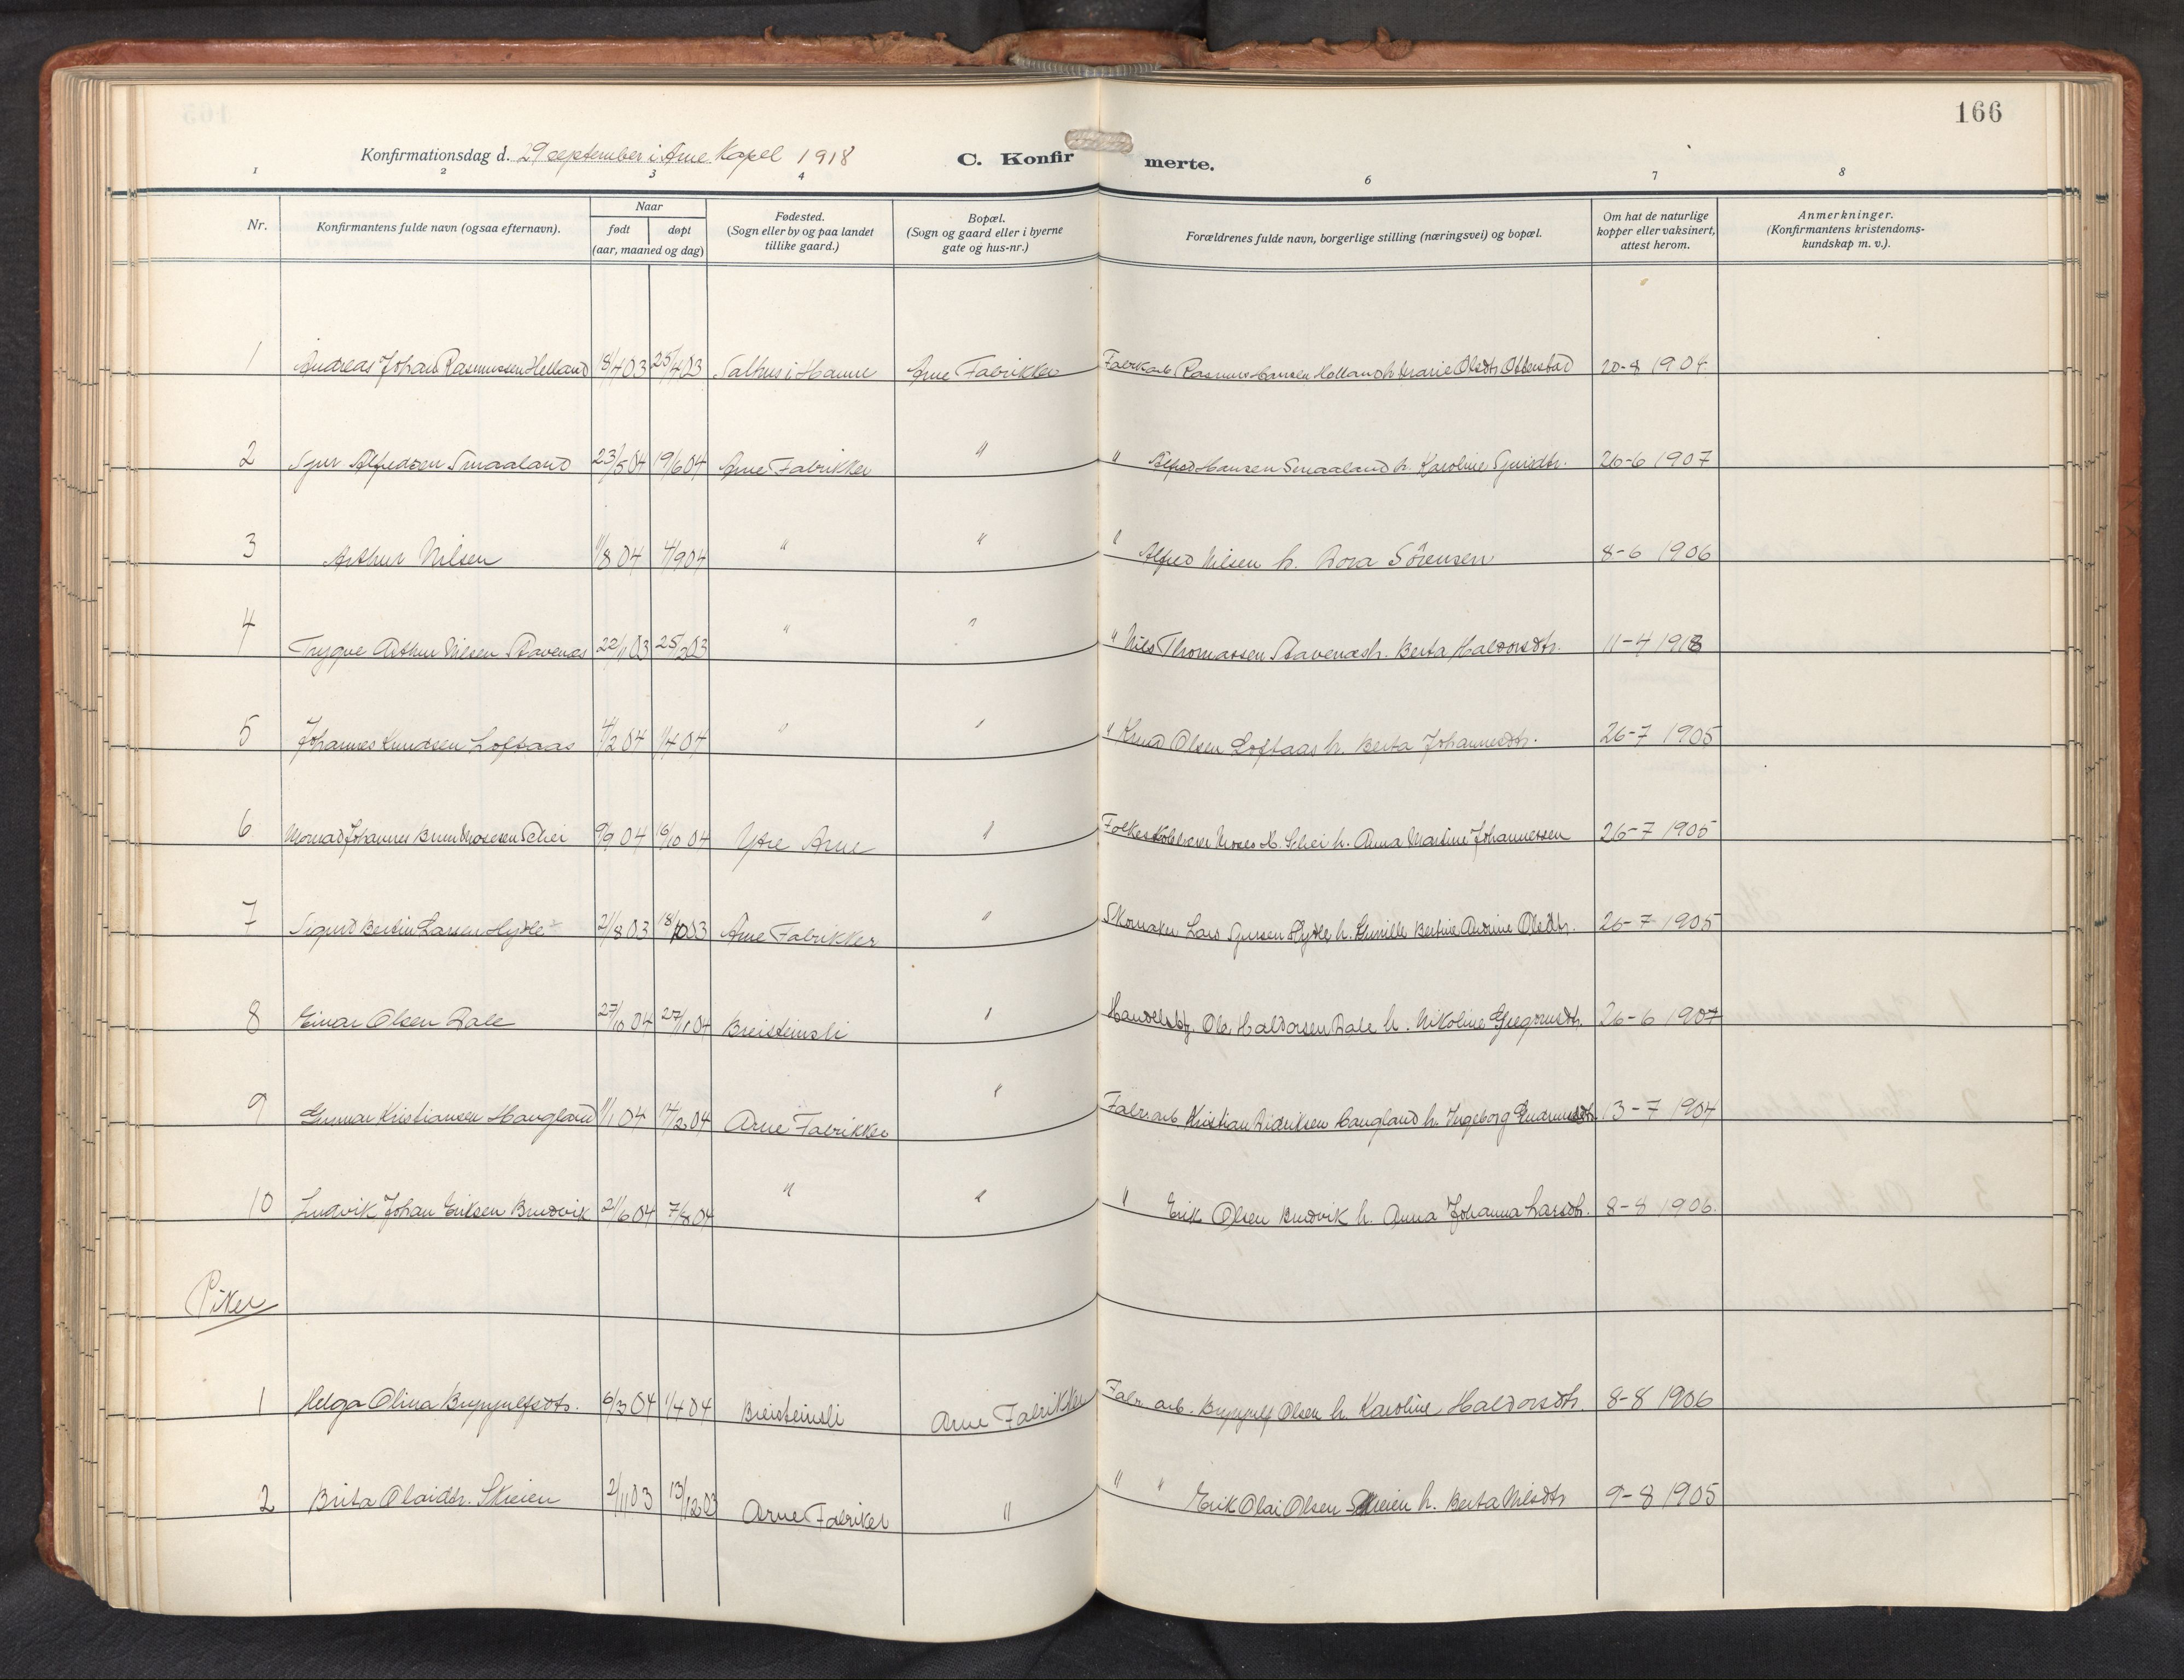 166
Konfirmationsdag d. 29 september i Arne Kapel 1918
C. Konfirmerte.
1 2 3 4 6 7 8
Nr.
Konfirmantens fulde navn (ogsaa efternavn).
Naar
født døpt
(aar, maaned og dag)
Fødested.
(Sogn eller by og paa landet
tillike gaard.)
Bopæl.
(Sogn og gaard eller i byerne
gate og hus-nr.)
Forældrenes fulde navn, borgerlige stilling (næringsvei) og bopæl.
Om hat de naturlige
kopper eller vaksinert,
attest herom.
Anmerkninger.
(Konfirmantens kristendoms-
kundskap m. v.).
1 Andreas Johan Rasmussen Helland 18/4 03 25/4 03 Salhus i Hamre Arne Fabrikker Rasmus Hansen Helland h. Marie Olsdtr. 20-8 1904
2 Sjur Alfredsen Smaaland 23/5 04 19/6 04 Arne Fabrikker " " Alfred Hansen Smaaland h. Karoline Sjursdtr. 26-6 1907
3 Arthur Nilsen 11/8 04 4/9 04 " " " Alfred Nilsen h. Dora Sörensen 8-6 1906
4 Trygve Arthur Nilsen Stavenes 22/1 03 25/2 03 " " " Nils Thomassen Stavenes h. Berta Haldorsdtr. 11-4 1918
5 Johannes Knudsen Loftaas 4/2 04 1/4 04 " " " Knud Olsen Loftaas h. Berta Johannesdtr. 26-7 1905
6 Johannes Brun Mosesen Schei 9/9 04 16/10 04 Ytre Arne " Moses M. Schei h. Anna Martine Johannessen 26-7 1905
7 Sigurd Bertin Larsen Hylle 2/8 03 18/10 03 Arne Fabrikker " Skomaker Lars Sjursen Hylle h. Gunille Bertine Andrine Olsdtr. 26-7 1905
8 Einar Olsen Dale 27/10 04 27/11 04 Breisteinsli " Ole Haldorsen Dale h. Nikoline Gregoriusdtr. 26-6 1907
9 Gunnar Kristiansen Haugland 11/1 04 14/2 04 Arne Fabrikker " Fabr. arb. Kristian Didriksen Haugland h. Ingeborg Gudmundsdtr. 13-7 1904
10 Ludvik Johan Eriksen Brudvik 2/6 04 7/8 04 " " " Erik Olsen Brudvik h. Anna Johanna Larsdtr. 8-8 1906.
Piker
1 Helga Olina Brynjulfsdtr. 6/3 04 1/4 04 Breisteinsli Arne Fabrikker Fabr. arb. Brynjulf Olsen h. Karoline Haldorsdtr. 8-8 1906
2 Brita Olaidtr. Skeien 2/11 03 13/12 03 Arne Fabriker " " " Erik Olai Olsen Skeien h. Berta Nilsdtr 9-8 1905